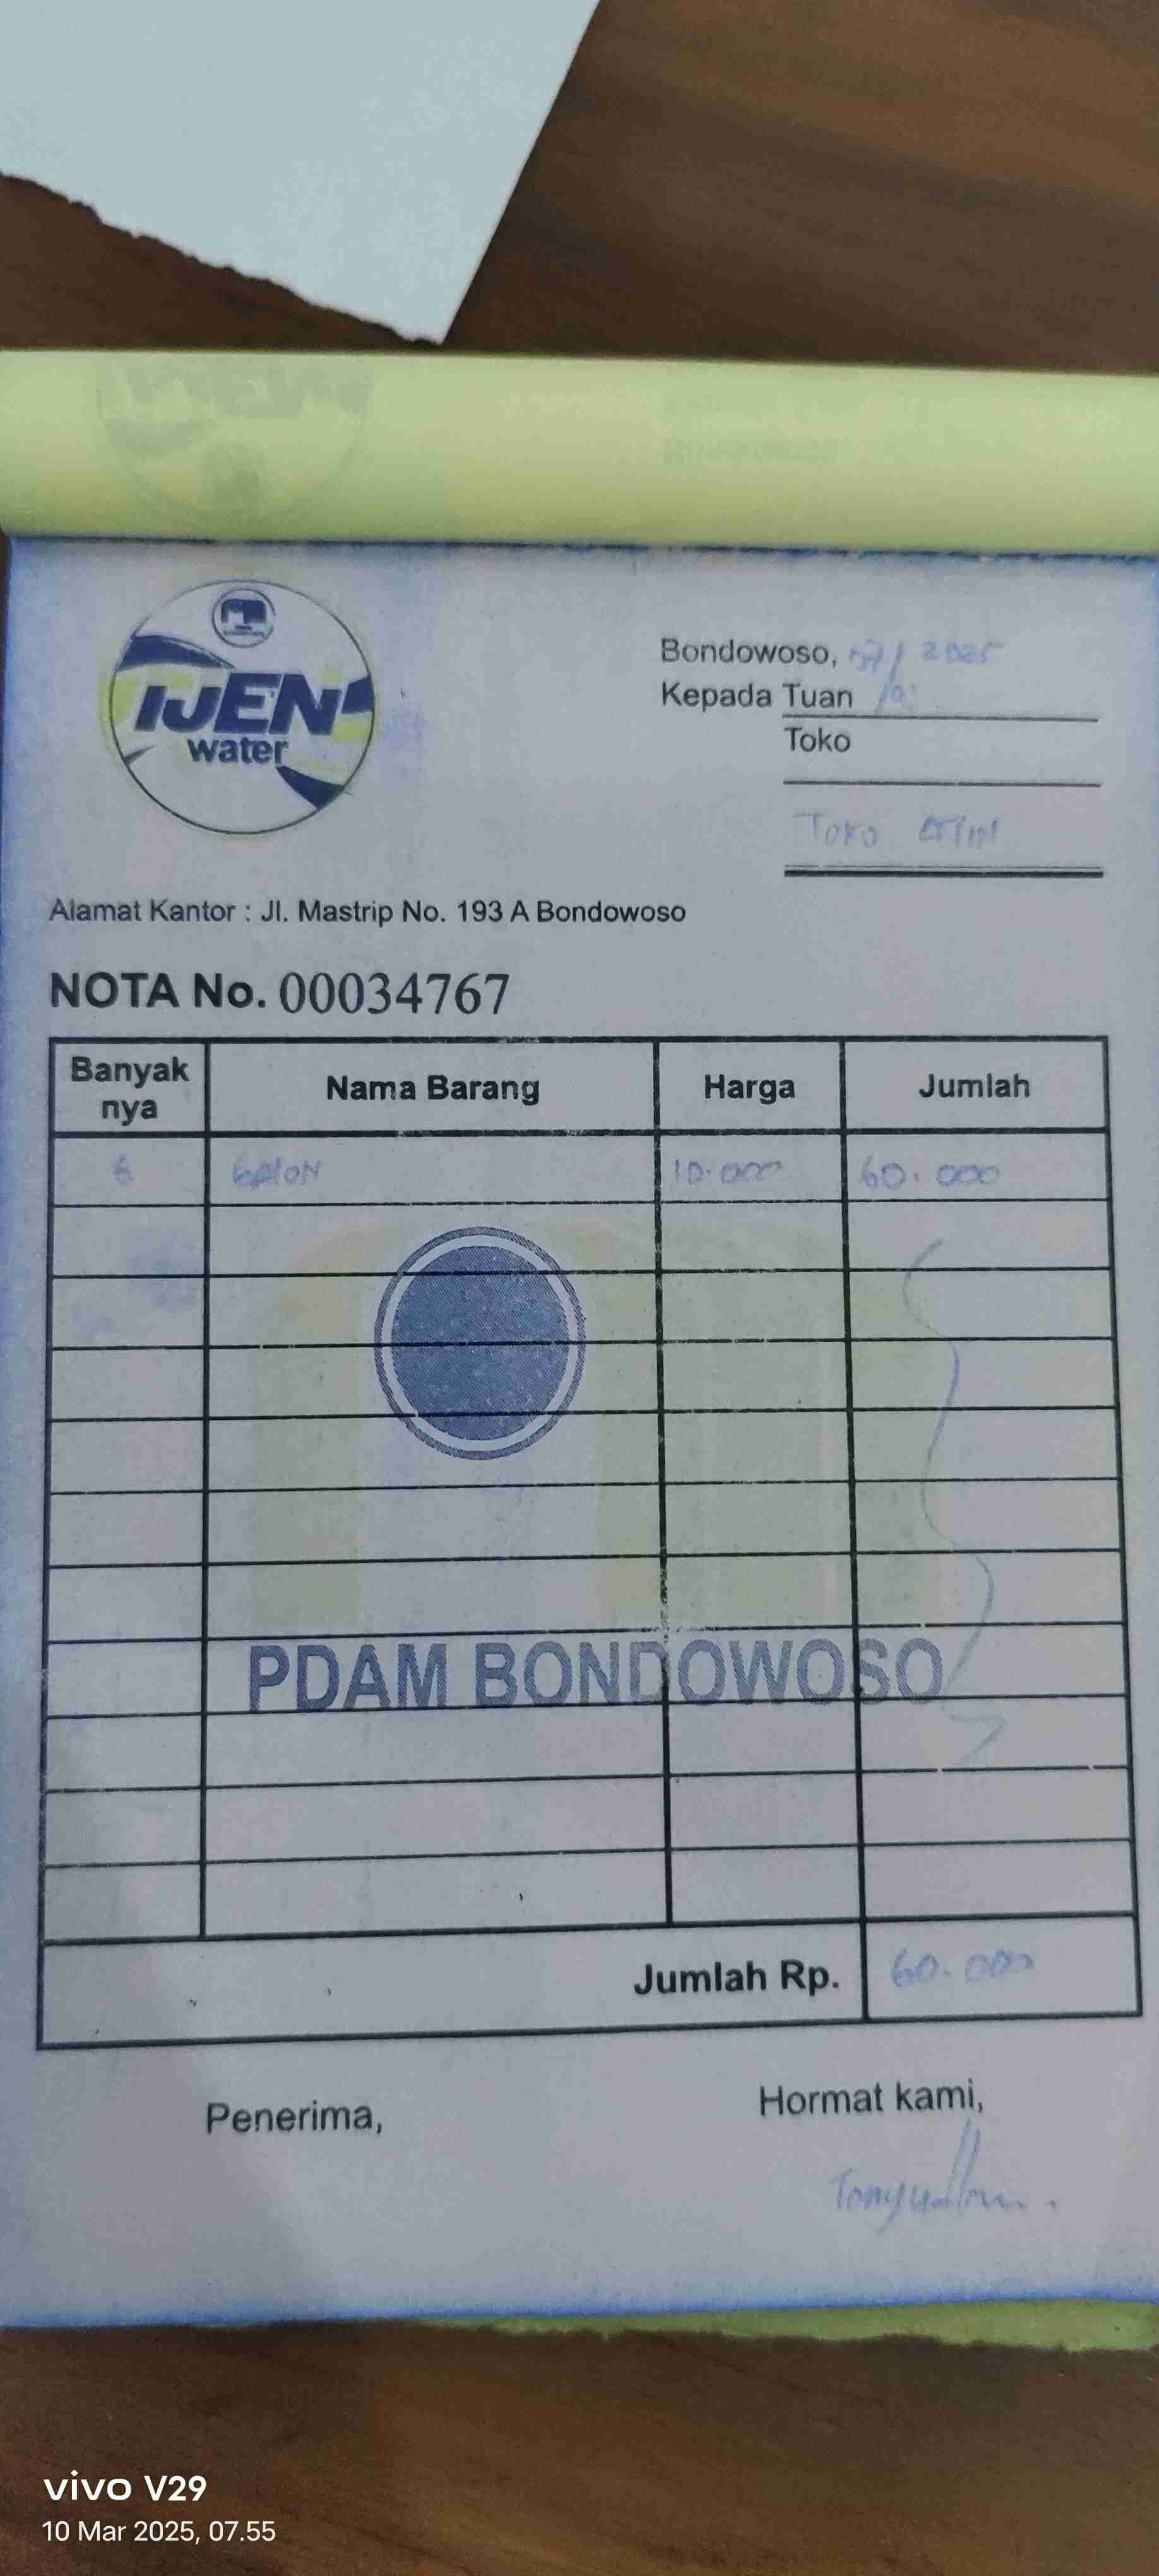 IJEN
water
Bondowoso, 07/ 2025
Kepada Tuan
Toko
Toko
Alamat Kantor : Jl. Mastrip No. 193 A Bondowoso
NOTA No. 00034767
Banyak nya Nama Barang Harga Jumlah
6 GALON 10.000 60.000
PDAM BONDOWOSO
Jumlah Rp. 60.000
Penerima, Hormat kami,
vivo V29
10 Mar 2025, 07.55